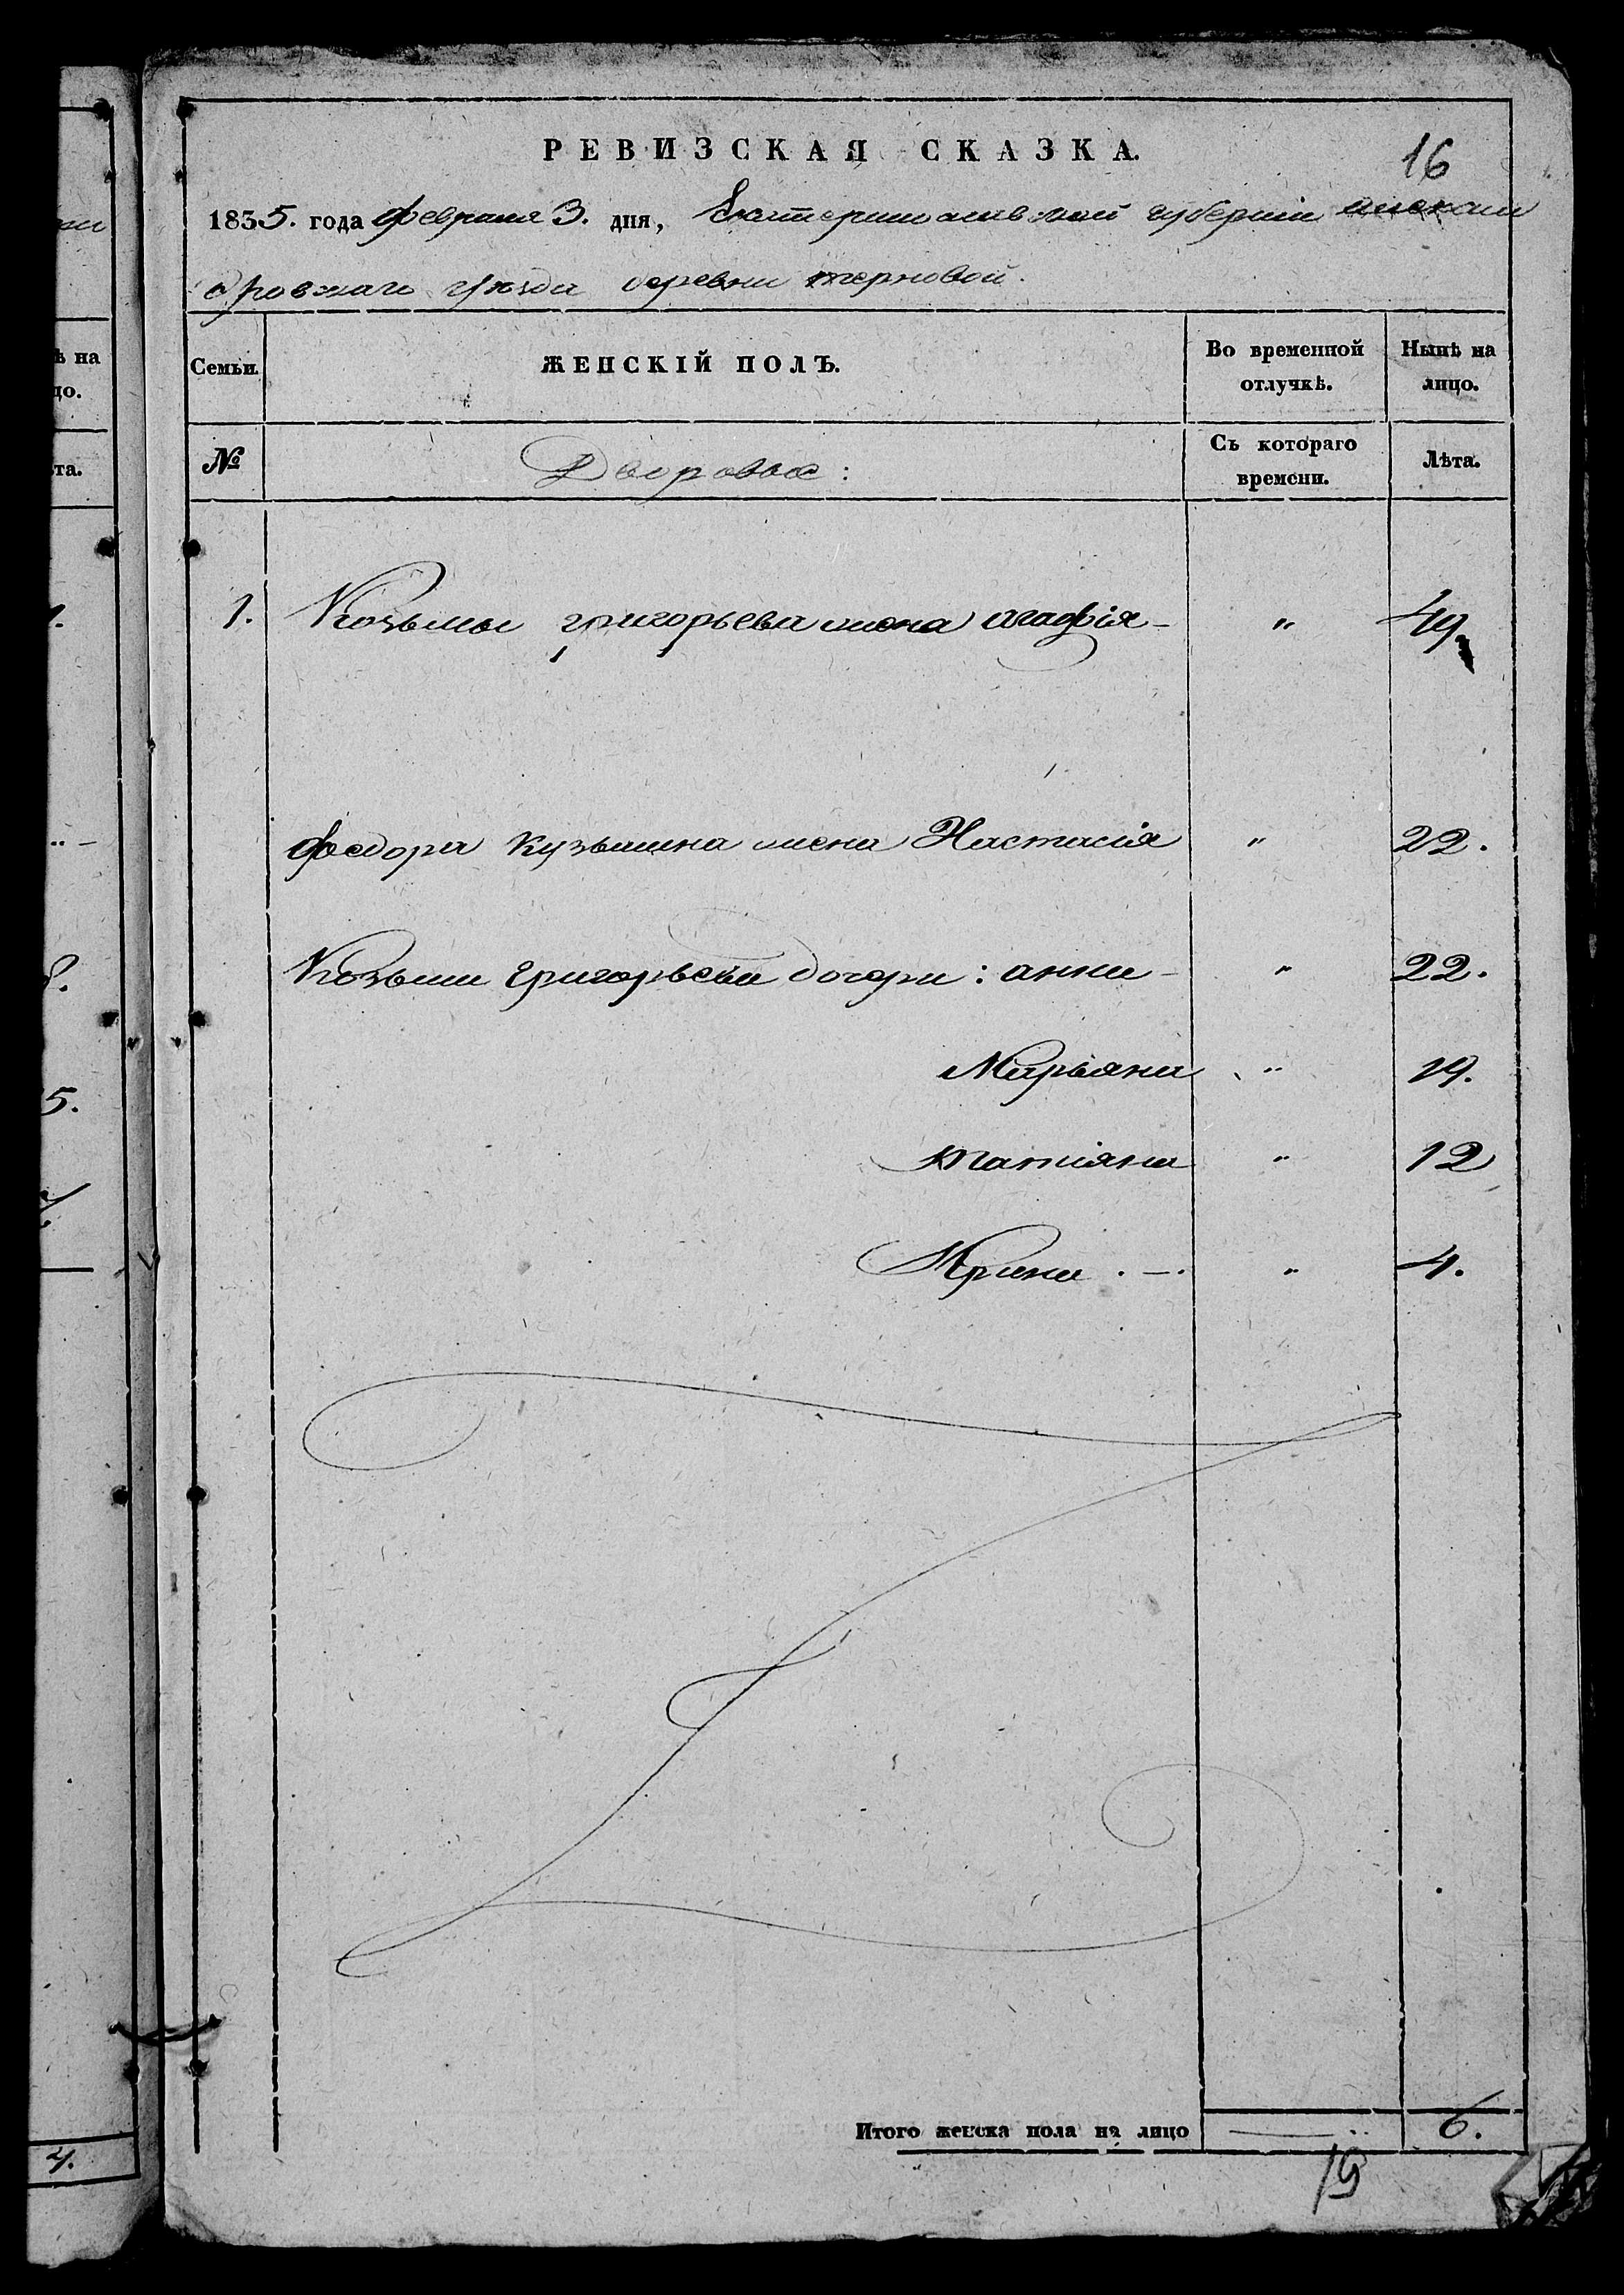 РЕВИЗСКАЯ СКАЗКА.
16
1835. года февраля 3. дня, Екатеринославской губерніи алексан
дровскаго уѣзда деревни терновой.
Семьи.
ЖЕНСКІЙ ПОЛЪ.
Во временной отлучкѣ.
Нынѣ на лицо.
№
Дворовые:
Съ котораго времени.
Лѣта.
1. Козьмы григорьева жена агафія - " 49.
Федора Кузьмина жена Настасія " 22.
Козьмы Григорьева дочери: анна - " 22.
Марьяна " 19.
татіяна " 12
Ирина . —. " 4.
Итого женска пола на лицо — .. 6.
19
ѣ на
цо.
та.
1.
8.
5.
4.